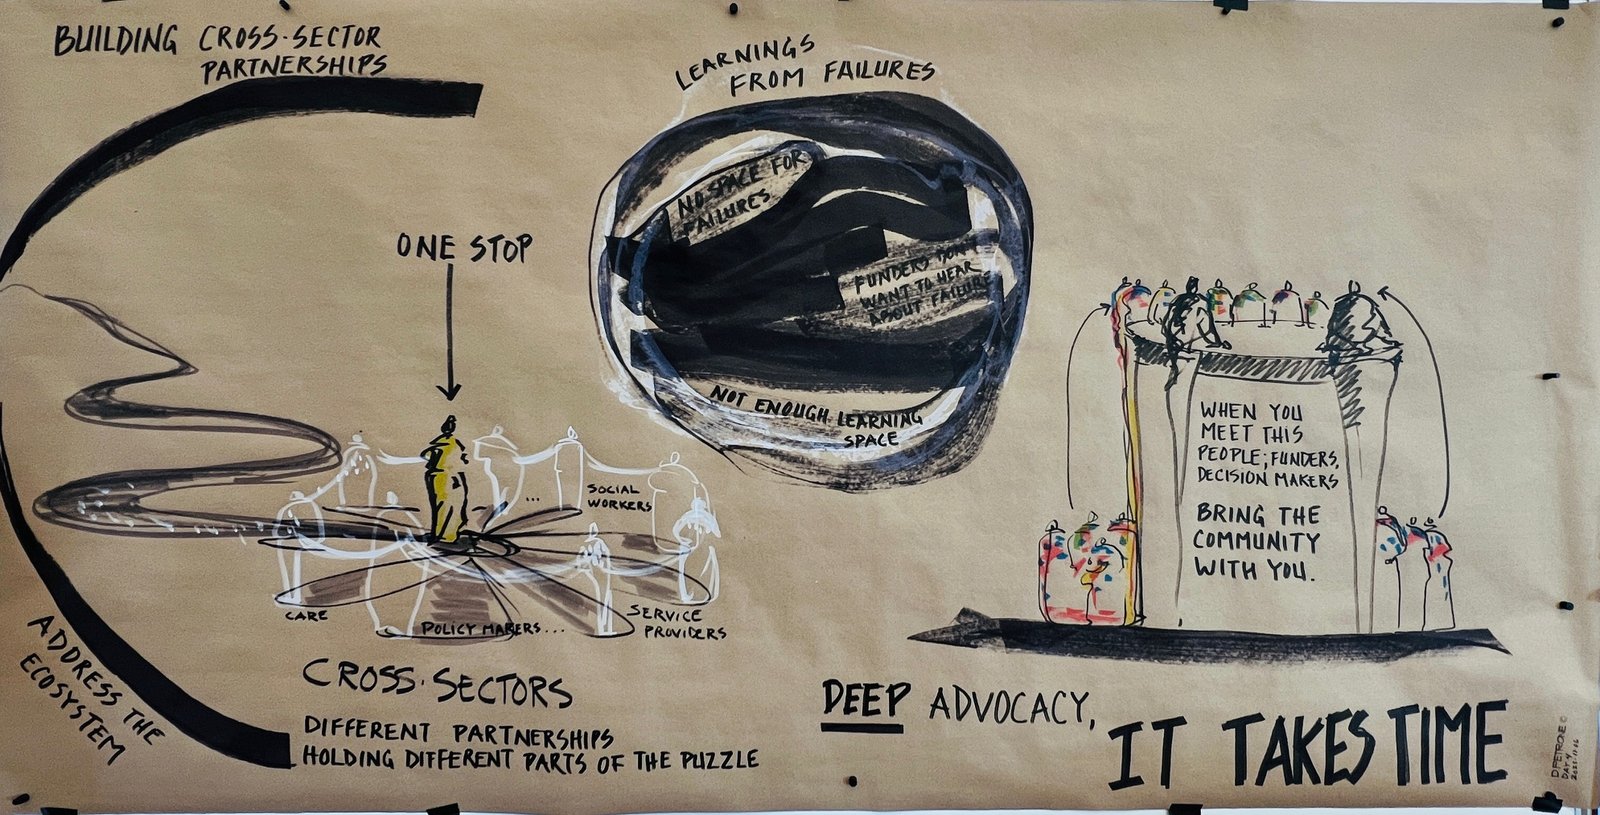 BUILDING CROSS-SECTOR
PARTNERSHIPS
LEARNINGS
FROM FAILURES
NO SPACE FOR
FAILURES
FUNDERS DON'T
WANT TO HEAR
ABOUT FAILURE
NOT ENOUGH LEARNING
SPACE
ONE STOP
...
SOCIAL
WORKERS
CARE
POLICY MAKERS...
SERVICE
PROVIDERS
ADDRESS THE
ECOSYSTEM
CROSS-SECTORS
DIFFERENT PARTNERSHIPS
HOLDING DIFFERENT PARTS OF THE PUZZLE
WHEN YOU
MEET THIS
PEOPLE; FUNDERS,
DECISION MAKERS
BRING THE
COMMUNITY
WITH YOU.
DEEP ADVOCACY,
IT TAKES TIME
DPETRONE ©
DAY 4